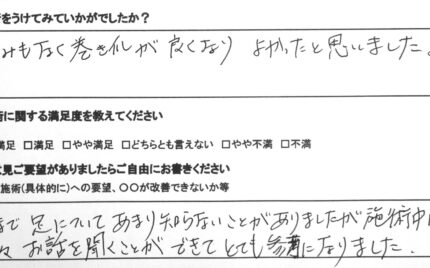 をうけてみていかがでしたか？
みもなく巻き爪が良くなり よかったと思いました。
に関する満足度を教えてください
満足 □満足 □やや満足 □どちらとも言えない □やや不満 □不満
見ご要望がありましたらご自由にお書きください
施術(具体的に)への要望、〇〇が改善できないか等
で 足について あまり知らないことがありましたが施術中に
お話を聞くことができてとても参考になりました.